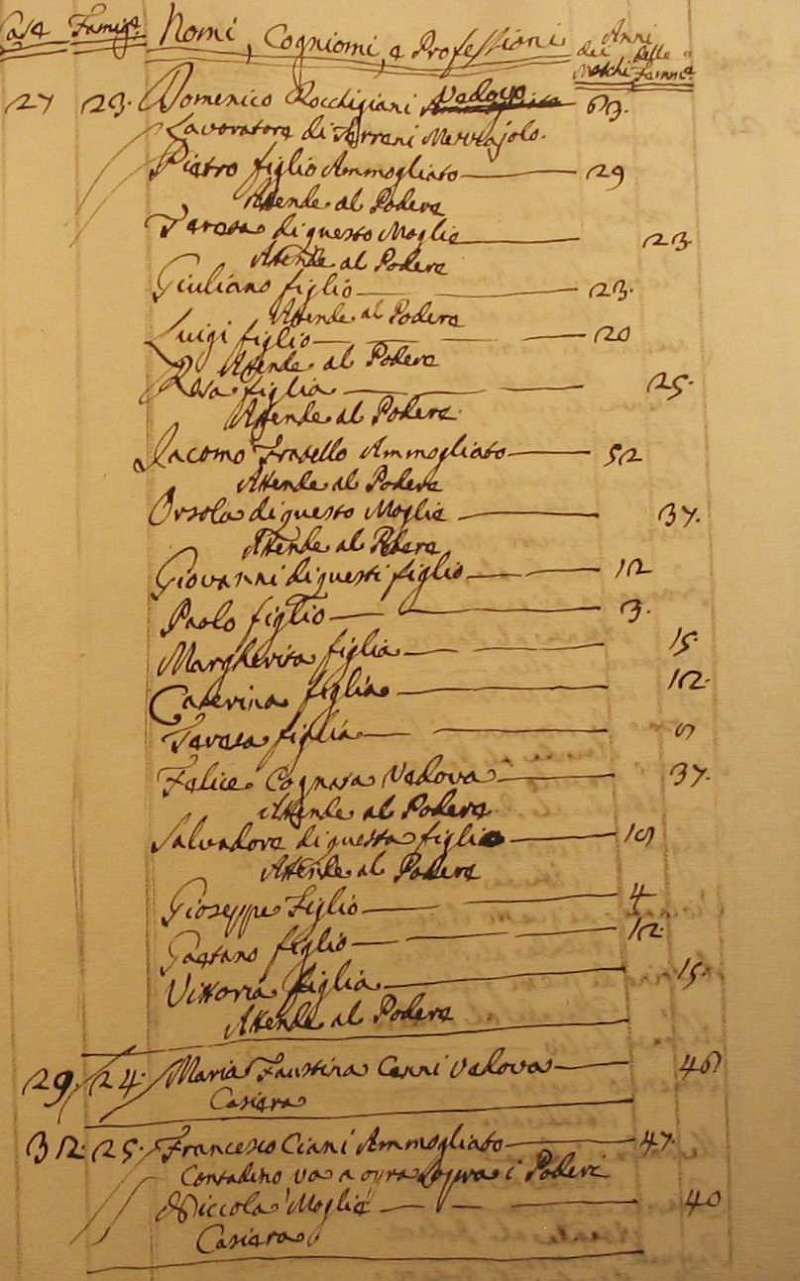 Casa Famig.e Nomi, Cogniomi, e Professioni Anni dei Maschi delle Femine
27 23. Domenico Rocchigiani Vedovo 63.
Lavoratore di Terreni Mezzajolo.
Pietro figlio Ammogliato 29
Attende al Podere
Teresa di questo Moglie 23
Attende al Podere
Giuliano figlio 23.
Attende al Podere
Luigi figlio 20
Attende al Podere
Rosa figlia 25.
Attende al Podere
Iacomo Fratello Ammogliato 52
Attende al Podere
Orsola di questo Moglie 37.
Attende al Podere
Giovanni di questi figlio 12
Paolo figlio 3.
Margherita figlia 15.
Caterina figlia 12.
Teresa figlia
Felice Cognata Vedova 37.
Attende al Podere
Salvadore di questa figlio
Attende al Podere
Gioseppe Figlio 4
Gaetano figlio 12.
Vittoria figlia 15.
Attende al Podere
29. 24. Maria Faustina Cenni Vedova
Casiera
32. 25. Francesco Ciani Ammogliato 47.
Contadino va a opra sopra i Poderi
Niccola Moglie 40
Casiera